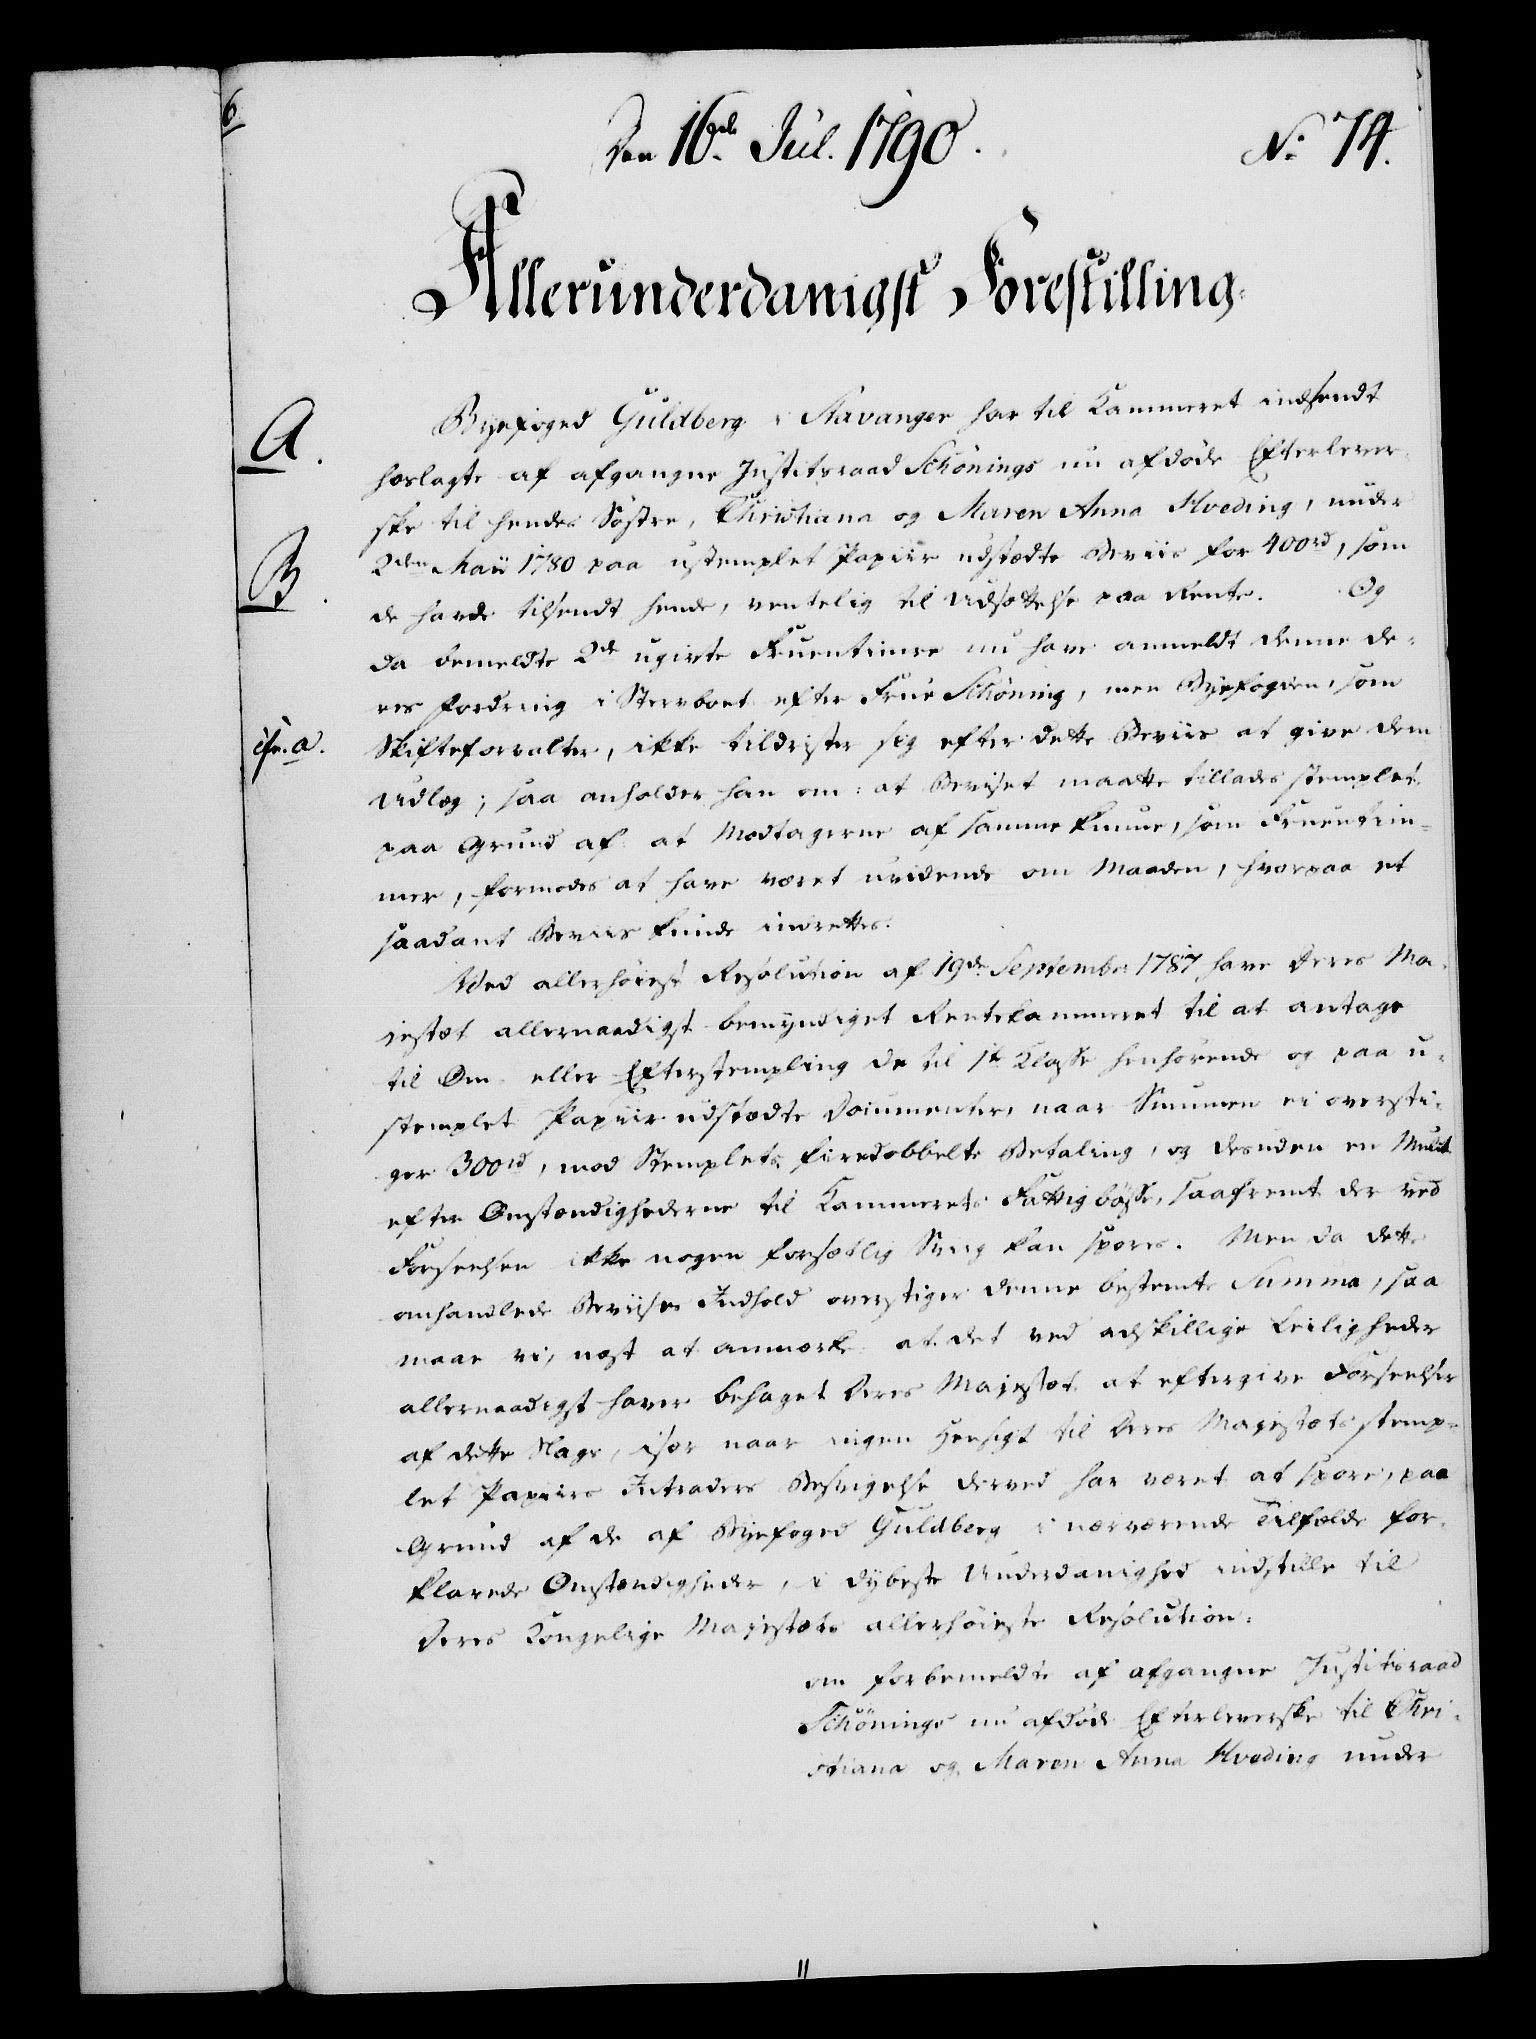 6
Den 16de Jul. 1790.
No 74.
Allerunderdanigst Forestilling.
A.
Byefoged Guldberg i Stavanger har til Kammeret indsendt
hoslagte af afgangne Justitsraad Schönings nu afdøde Efterlever-
ske til hendes Søstre, Christiana og Maren Anna Hveding, under
B.
2den Maii 1780 paa ustemplet Papiir udstædte Beviis for 400rd, som
de havde tilsendt hende, ventelig til Udsættelse paa Rente. Og
da bemeldte 2de ugivte Fruentimre nu have anmeldt denne de-
res Fordring i Stervboet efter Frue Schöning, men Byefogden, som
cfr. a.
Skifteforvalter, ikke tildrister sig efter dette Beviis at give dem
Udlæg; saa anholder han om: at Beviset maatte tillades stemplet,
paa Grund af: at Modtagerne af samme kunne, som Fruentim-
mer, formodes at have været uvidende om Maaden, hvorpaa et
saadant Beviis kunde indrettes.
Ved allerhöieste Resolution af 19de September 1787 have Deres Ma-
iestæt allernaadigst bemyndiget Rentekammeret til at antage
til Om- eller Efterstempling de til 1te Classe henhørende og paa u-
stemplet Papiir udstædte Documenter, naar Summen ei oversti-
ger 300rd, mod Stemplets firedobbelte Betaling, og desuden en Mulct
efter Omstændighederne til Kammerets Fattigbøsse, saafremt der ved
Forseelsen ikke nogen forsætlig Svig kan spores. Men da dette
omhandlede Beviises Indhold overstiger denne bestemte Summa, saa
maae vi, næst at anmærke: at det ved adskillige Leiligheder
allernaadigst haver behaget Deres Majestæt at eftergive Forseelser
af dette Slags, især naar ingen Hensigt til Deres Majestæts stemp-
let Papiirs Intraders Besvigelse derved har været at spore, paa
Grund af de af Byefoged Guldberg i nærværende Tilfælde for-
klarede Omstændigheder, i dybeste Underdanighed indstille til
Deres Kongelige Majestæts allerhöieste Resolution:
om forbemeldte af afgangne Justitsraad
Schönings nu afdøde Efterleverske til Chri-
stiana og Maren Anna Hveding under